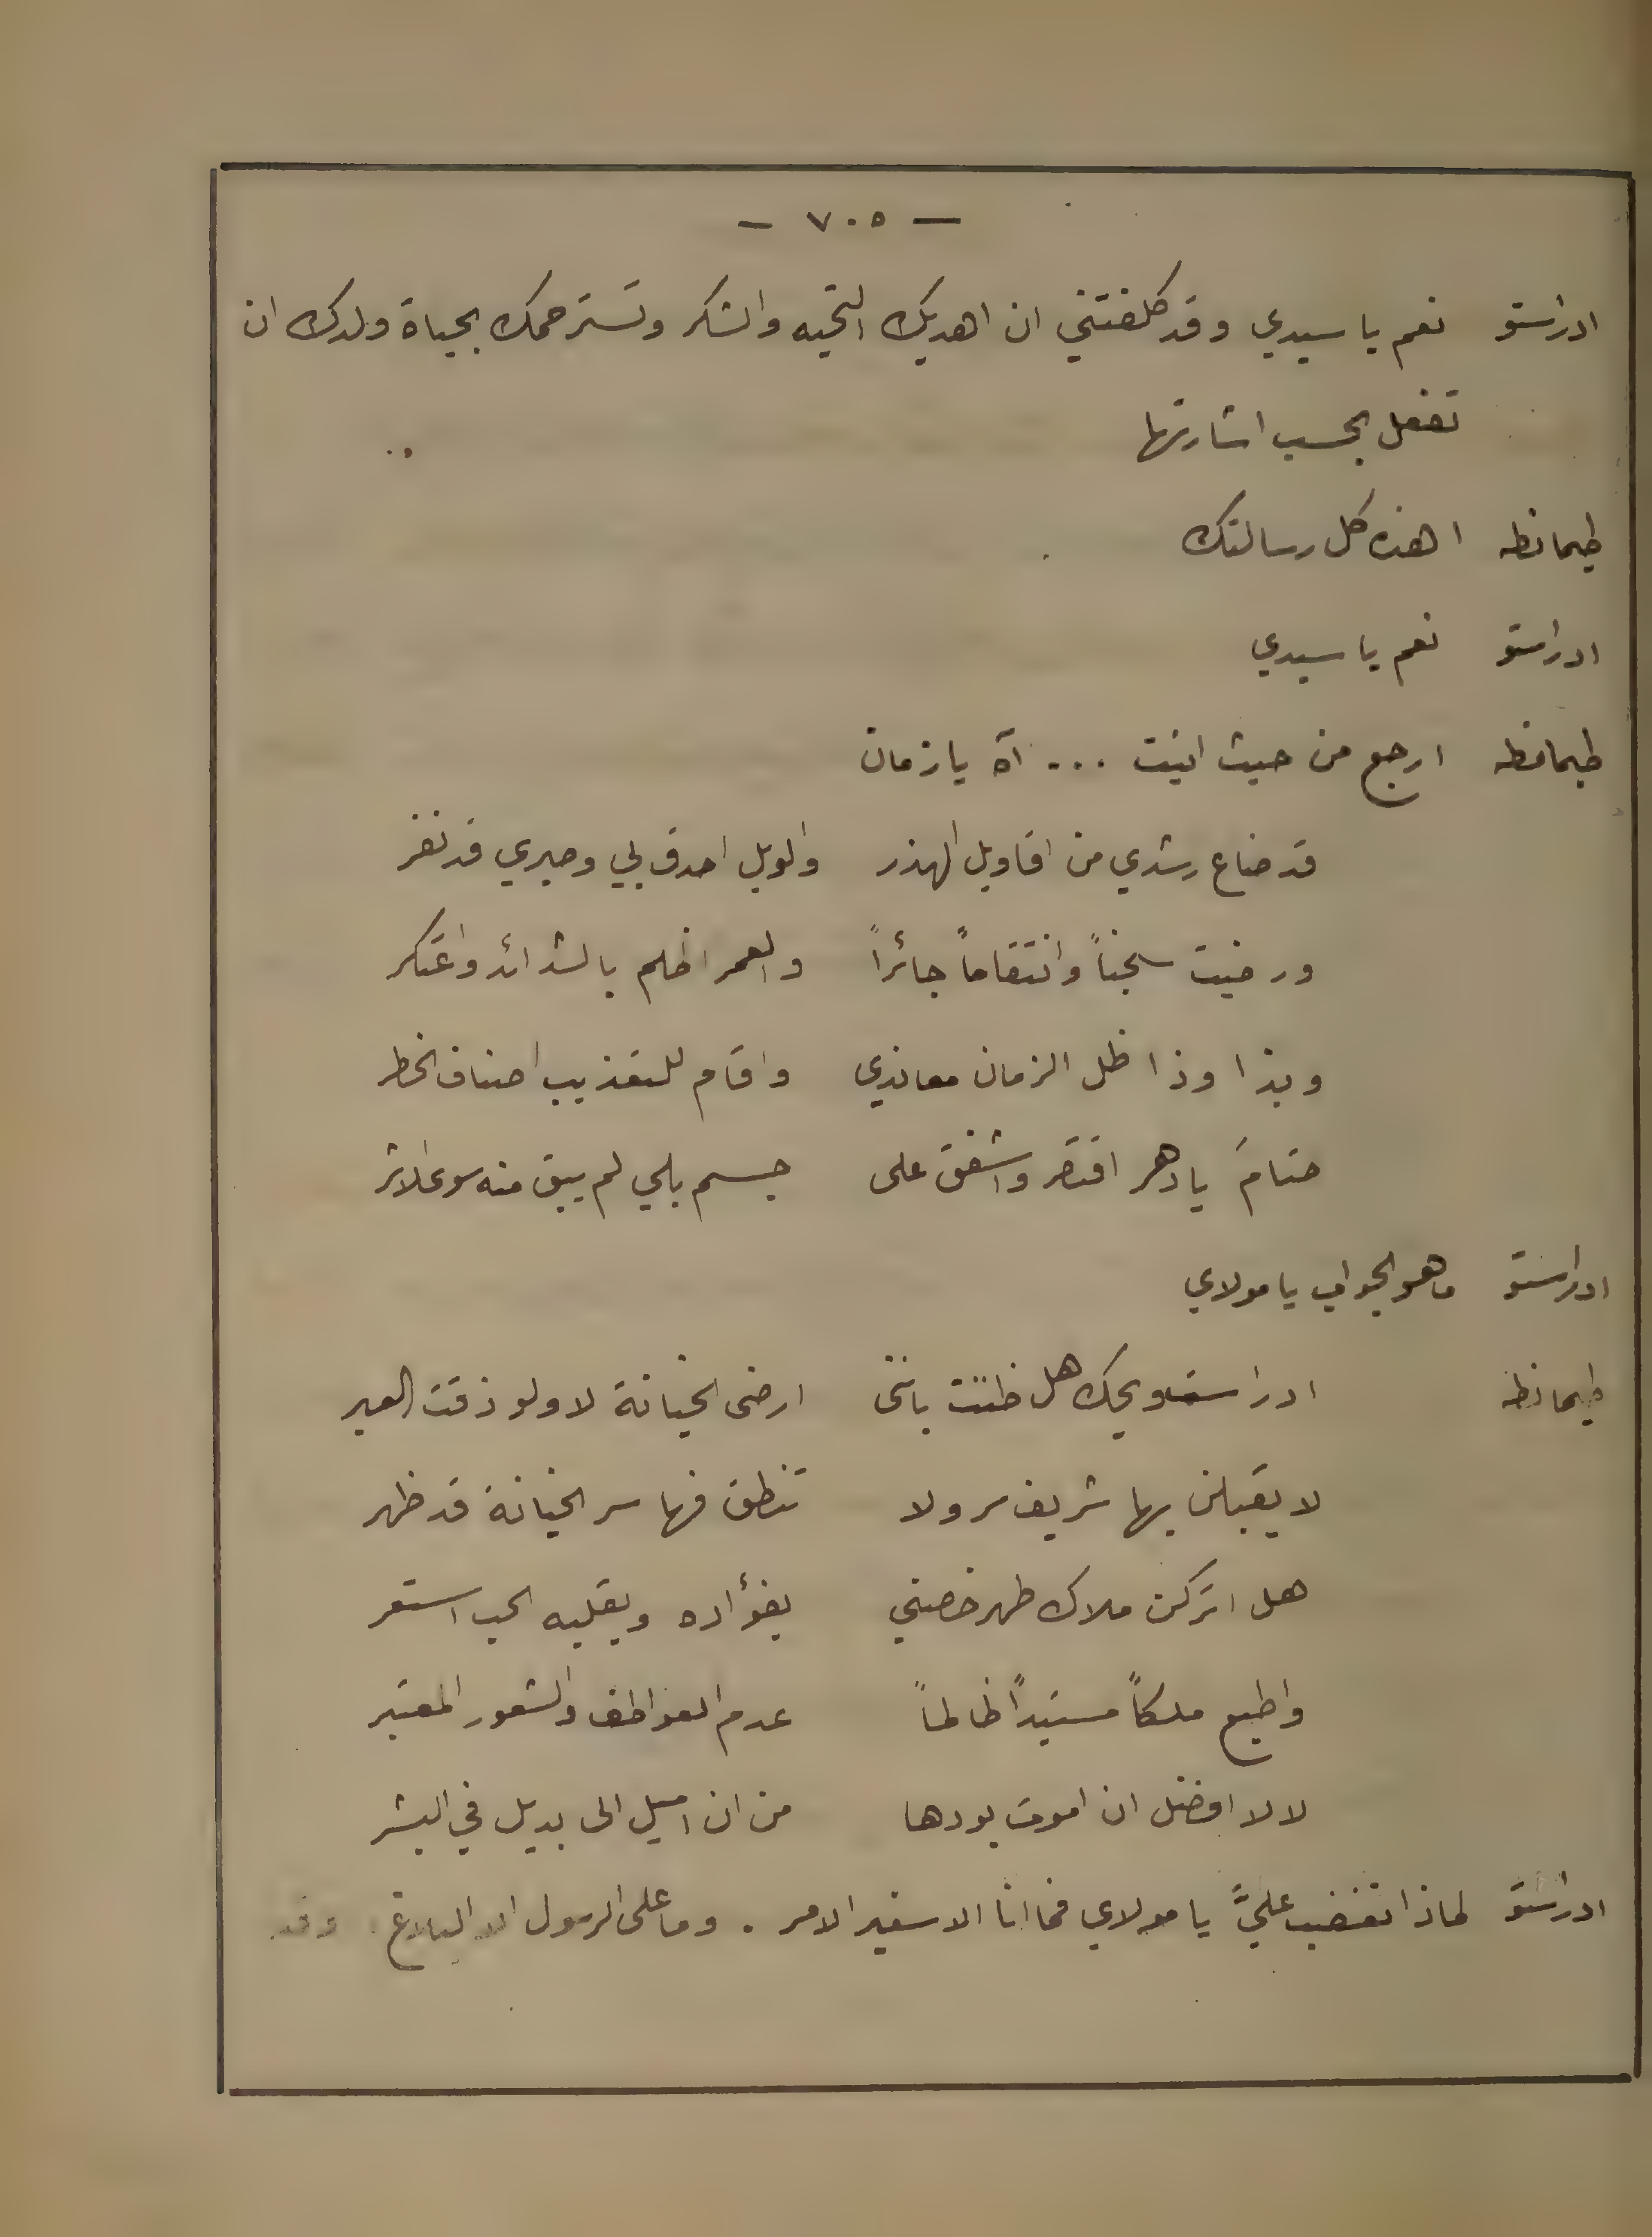 — ٧٠٥ —
ادراستو نعم يا سيدي وقد كلفتني ان اهديك التحيه والشكر وتسترحمك بحياة ولدك ان
تفعل بحسب اشارتها
طيمانطه اهذه كل رسالتك
ادراستو نعم يا سيدي
طيمانطه ارجع من حيث اتيت ... آه يا زمان
قد ضاع رشدي من اقاويل الهذر والويل احدق بي وصبري قد نفر
ورضيت سجناً وانتقاماً جائراً والعمر اظلم بالشدائد واعتكر
وبذا وذا ظل الزمان معاندي واقام للتعذيب اصناف الخطر
حتامَ يا دهر اقتصر واشفق على جسم بلي لم يبق منه سوى الاثر
ادراستو ما هو الجواب يا مولاي
طيمانطه ادراستو ويحك هل ظننت بانني ارضى الخيانة لا ولو ذقت العبر
لا يقبلن بها شريف ولا تنطق فيها سر الخيانة قد ظهر
هل اتركن ملاك طهر خصني بفؤاده وبقلبه الحب استعر
واطيع ملكاً مستبداً ظالماً عدم العواطف والشعور المعتبر
لا لا افضل ان اموت بودها من ان اميل الى بديل في البشر
ادراستو لماذا تغضب عليَّ يا مولاي فما انا الا سفير الامر . وما على الرسول الا البلاغ . وقد